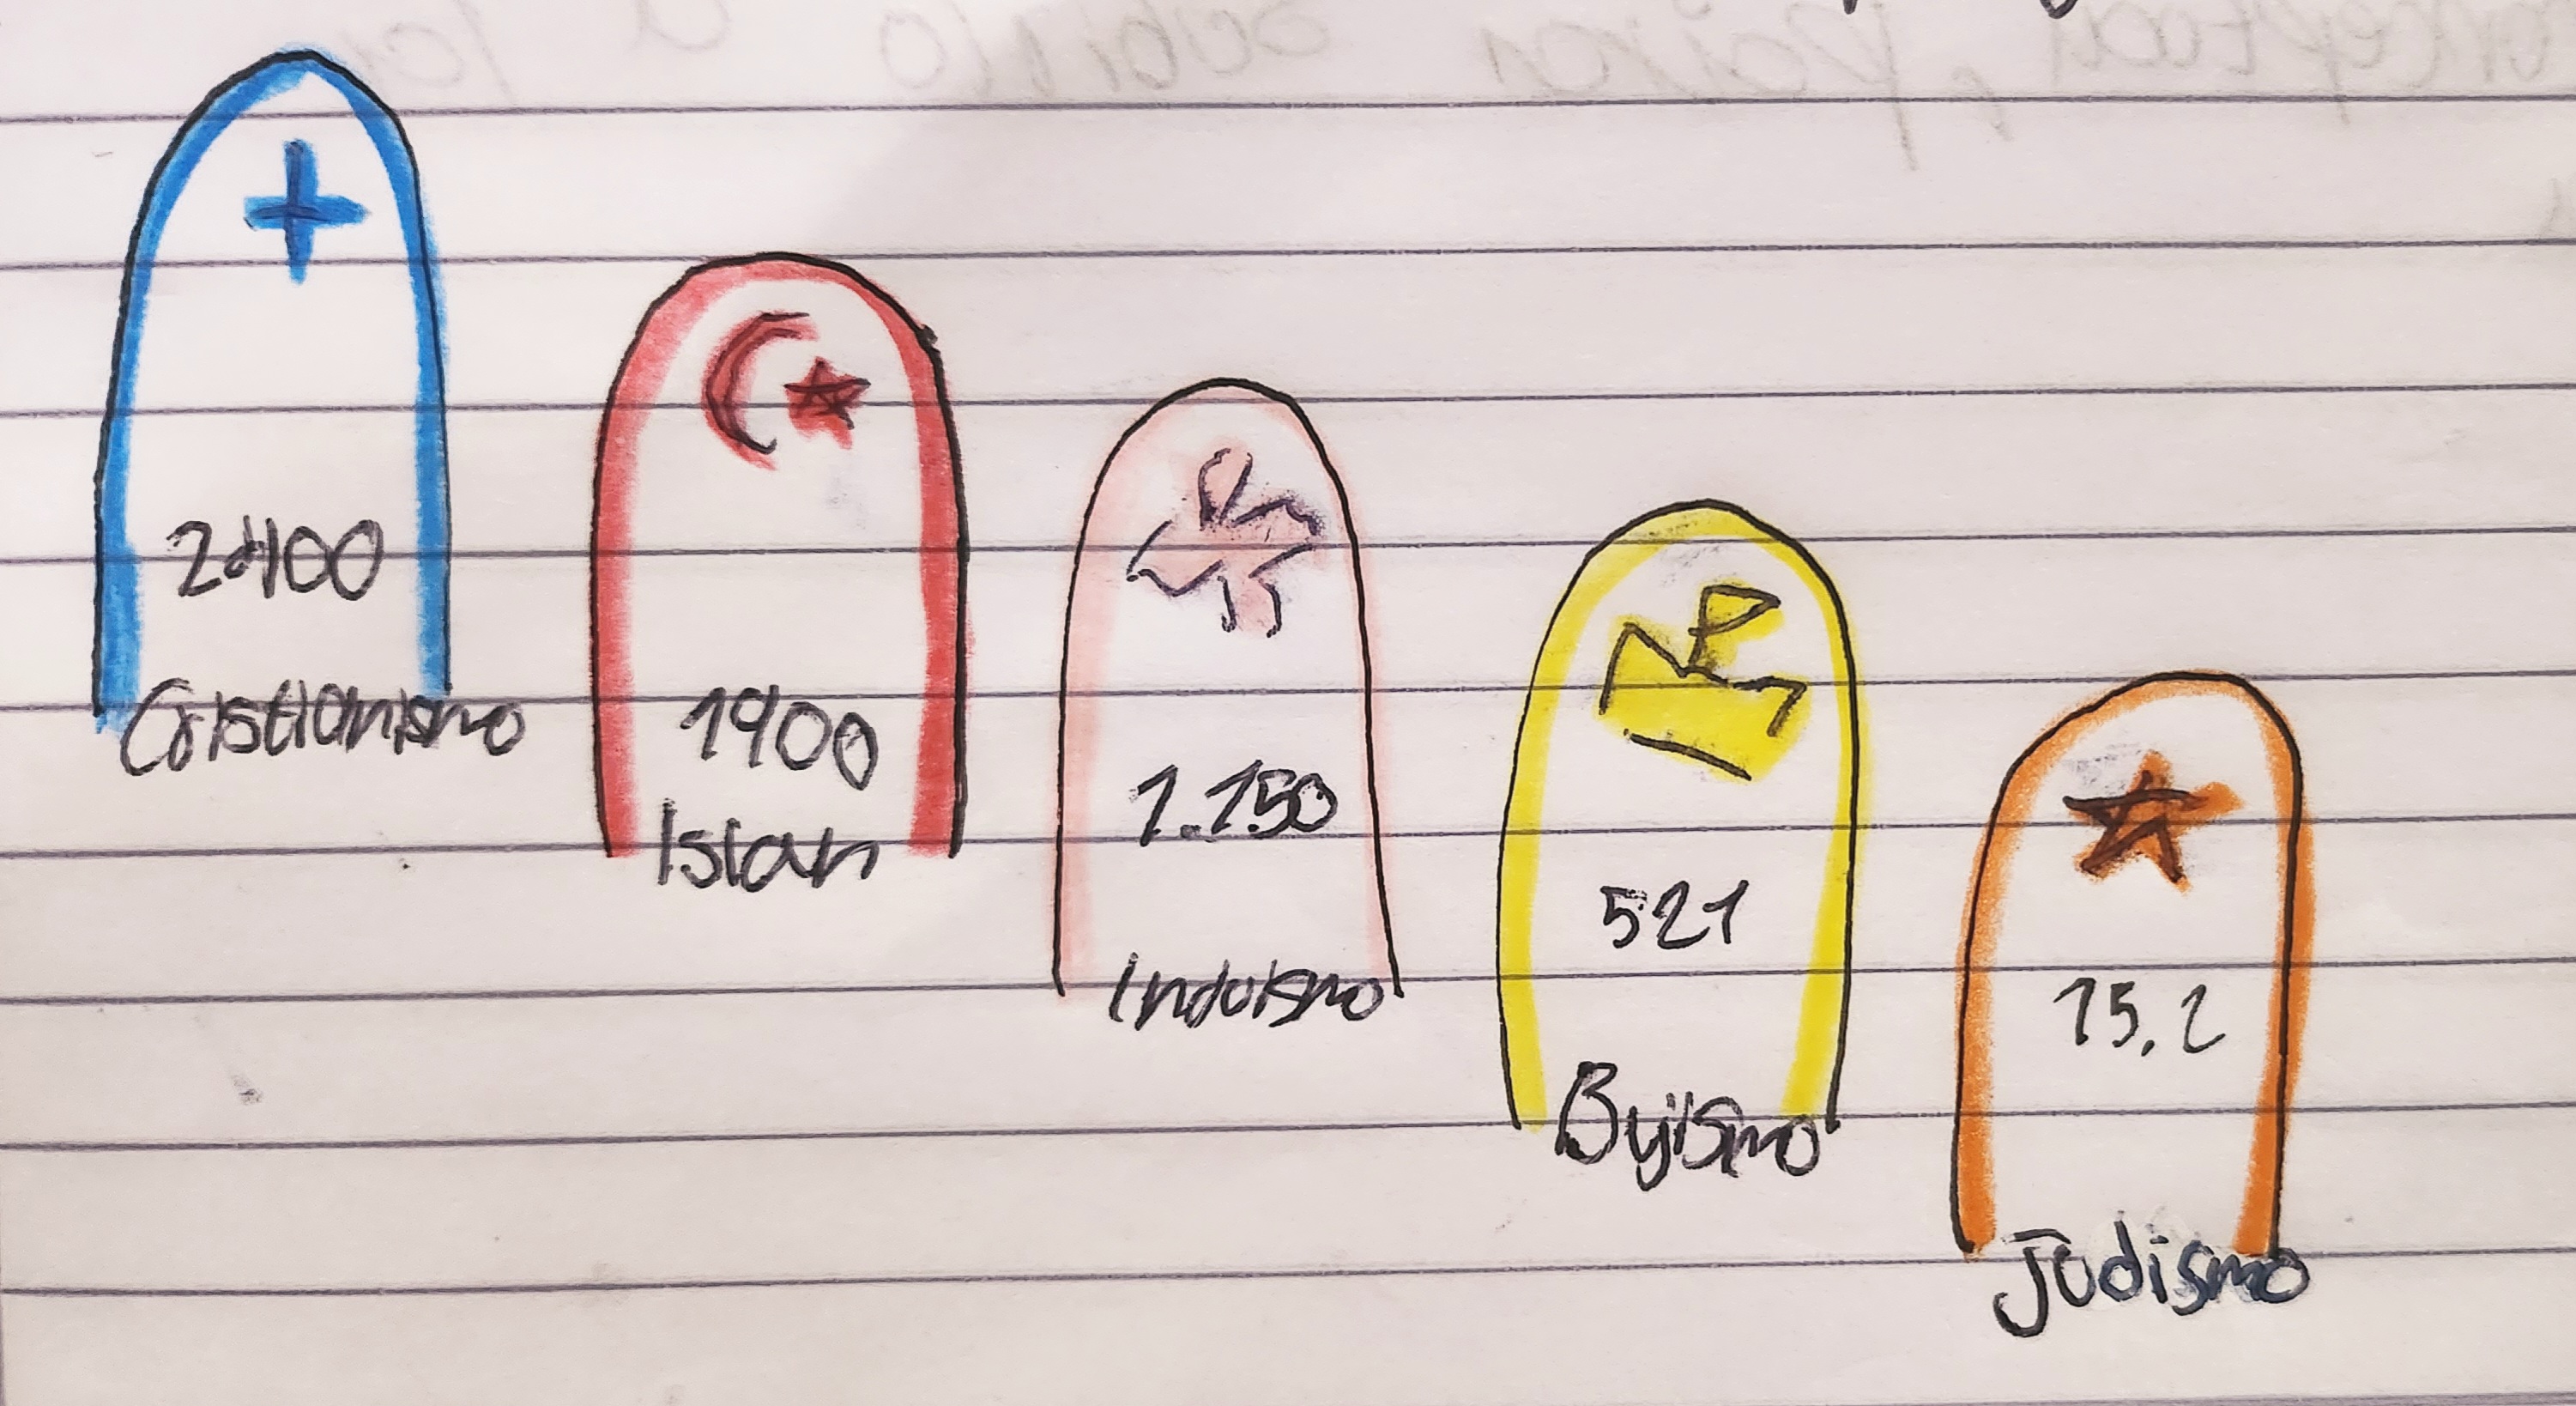 2400
Cristianismo
1900
Islan
1.150
Induismo
521
Bujismo
15.2
Judismo